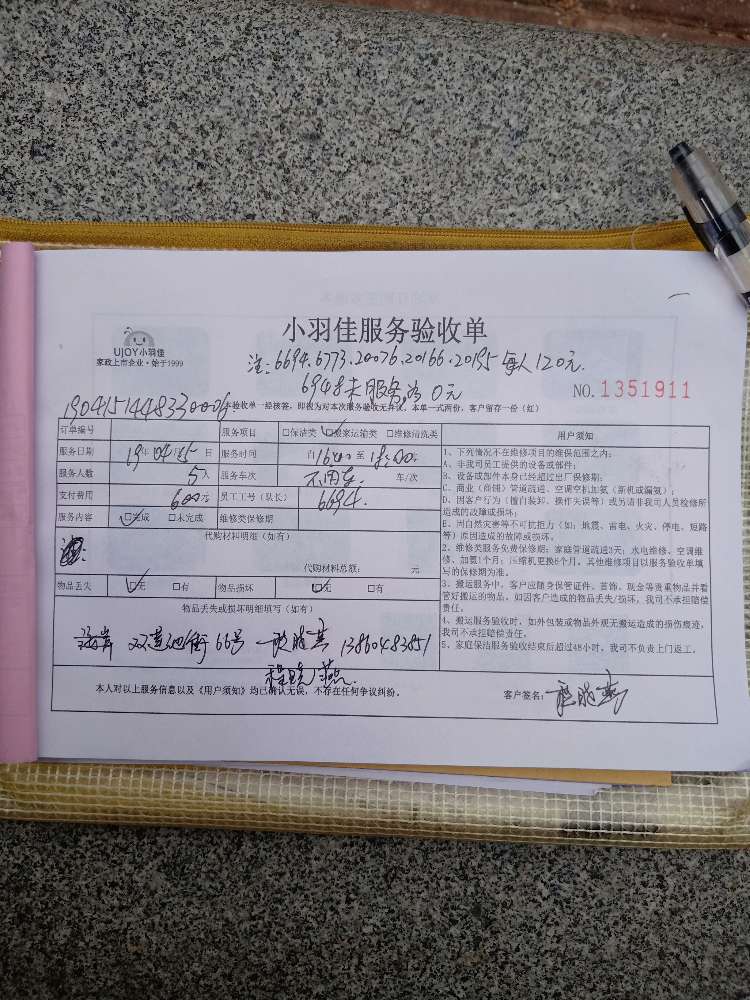 小羽佳服务验收单
UJOY小羽佳
家政上市企业·始于1999
注:6694.6773.20076.20166.20195每人120元.
6948未服务,为0元
NO.1351911
本验收单一经核签,即视为对本次服务验收无异议,本单一式两份,客户留存一份(红)
订单编号 服务项目 □保洁类 ☑搬家运输类 □维修清洗类
服务日期 19年04月15日 服务时间 自16:00至18:00
服务人数 5人 服务车次 不用车 车/次
支付费用 600元 员工工号(队长) 6694.
服务内容 ☑完成 □未完成 维修类保修期
代购材料明细(如有)
代购材料总额: 元
物品丢失 ☑无 □有 物品损坏 ☑无 □有
物品丢失或损坏明细填写(如有)
双莲池街66号 13860483851
程晓燕
本人对以上服务信息以及《用户须知》均已确认无误,不存在任何争议纠纷。
客户签名:程晓燕
用户须知
1、下列情况不在维修项目的维保范围之内:
A、非我司员工提供的设备或部件;
B、设备或部件本身已经超过出厂保修期;
C、商业(商铺)管道疏通、空调空机加氨(新机或漏氨);
D、因客户行为(擅自装卸、操作失误等)或另请非我司人员检修所
造成的故障或损坏;
E、因自然灾害等不可抗拒力(如:地震、雷电、火灾、停电、短路
等)原因造成的故障或损坏。
2、维修类服务免费保修期:家庭管道疏通3天;水电维修、空调维
修、加氨1个月;压缩机更换6个月。其他维修项目以服务验收单填
写的保修期为准。
3、搬运服务中,客户应随身保管证件、首饰、现金等贵重物品并看
管好搬运的物品,如因客户造成的物品丢失/损坏,我司不承担赔偿
责任。
4、搬运服务验收时,如外包装或物品外观无搬运造成的损伤痕迹,
我司不承担赔偿责任。
5、家庭保洁服务验收结束后超过48小时,我司不负责上门返工。